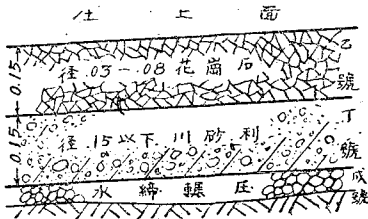 仕上面
0.15
径.03-.08花崗石
乙號
0.15
径.15以下川砂利
丁號
水締輾圧
戊號